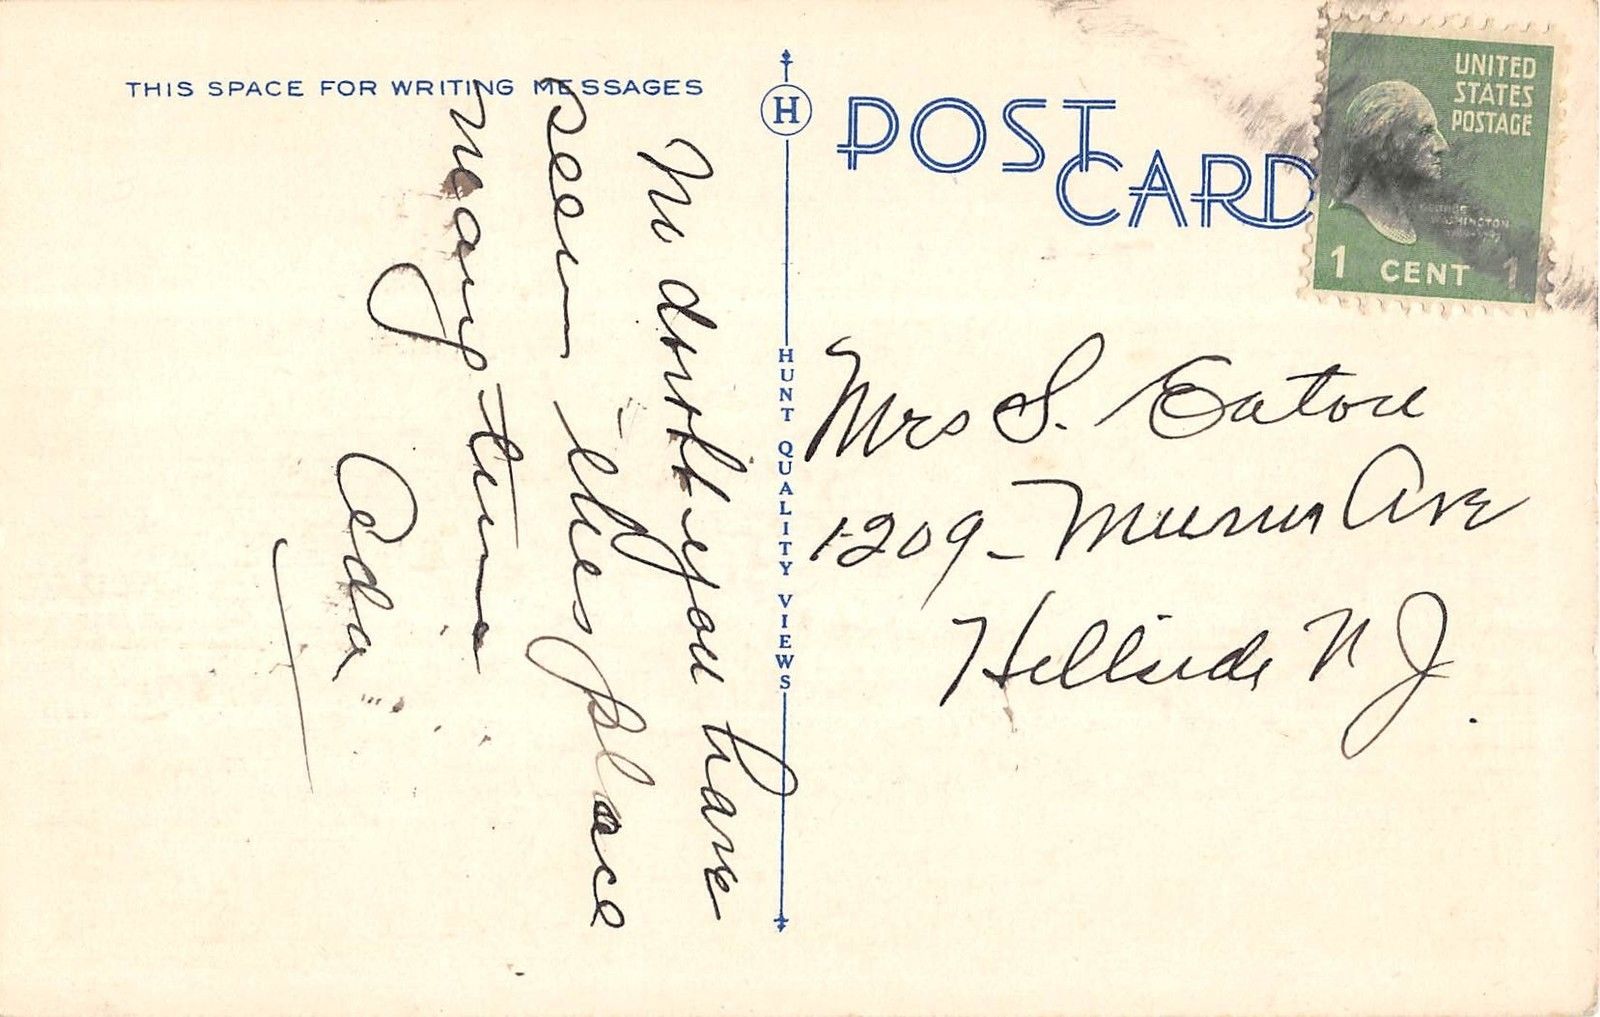 THIS SPACE FOR WRITING MESSAGES
No doubt you have
seen this place
many times
Ada
H
HUNT QUALITY VIEWS
POST
CARD
UNITED
STATES
POSTAGE
GEORGE
WASHINGTON
1 CENT 1
Mrs S. Eaton
1209 - Ave
Hillside N J.